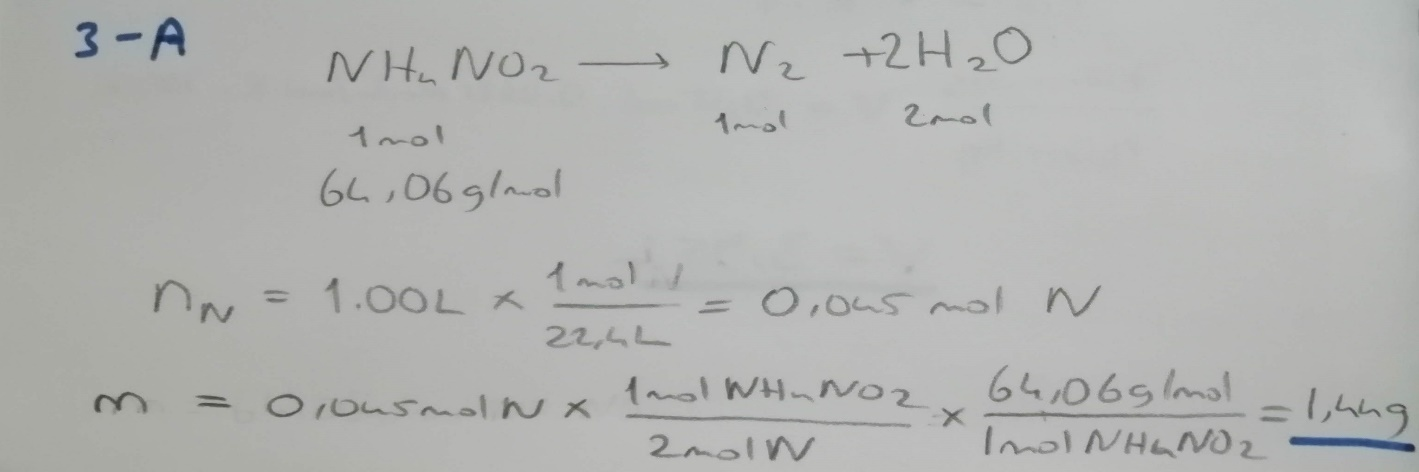 3-A
NH₄NO₂ → N₂ + 2H₂O
1mol 1mol 2mol
64,06g/mol
n_N = 1.00L × 1mol / 22,4L = 0,045 mol N
m = 0,045molN × 1mol NH₄NO₂ / 2molN × 64,06g/mol / 1mol NH₄NO₂ = 1,44g